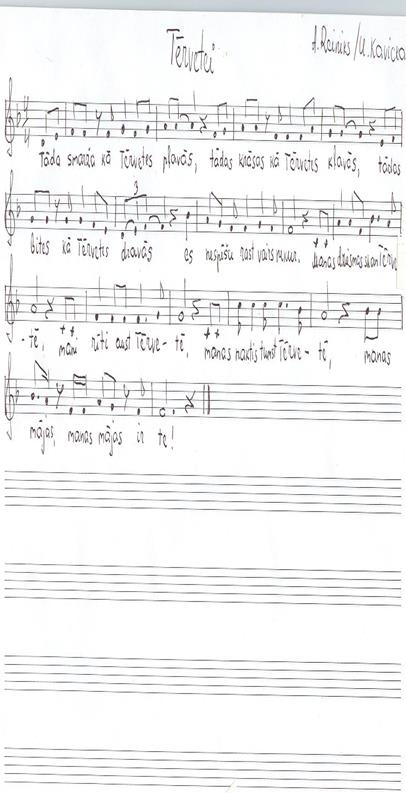 Tērvetei
A. Rainiks / U. Kavicka
Tāda smarža kā Tērvetes pļavās, tādas krāsas kā Tērvetes kļavās, tādas
3
bites kā Tērvetes dravās es nespēšu rast vairs nekur. Manas dziesmas skan Tērve
-tē, mani rīti aust Tērve-tē, manas naktis tumst Tērve-tē, manas
mājas, manas mājas ir te!